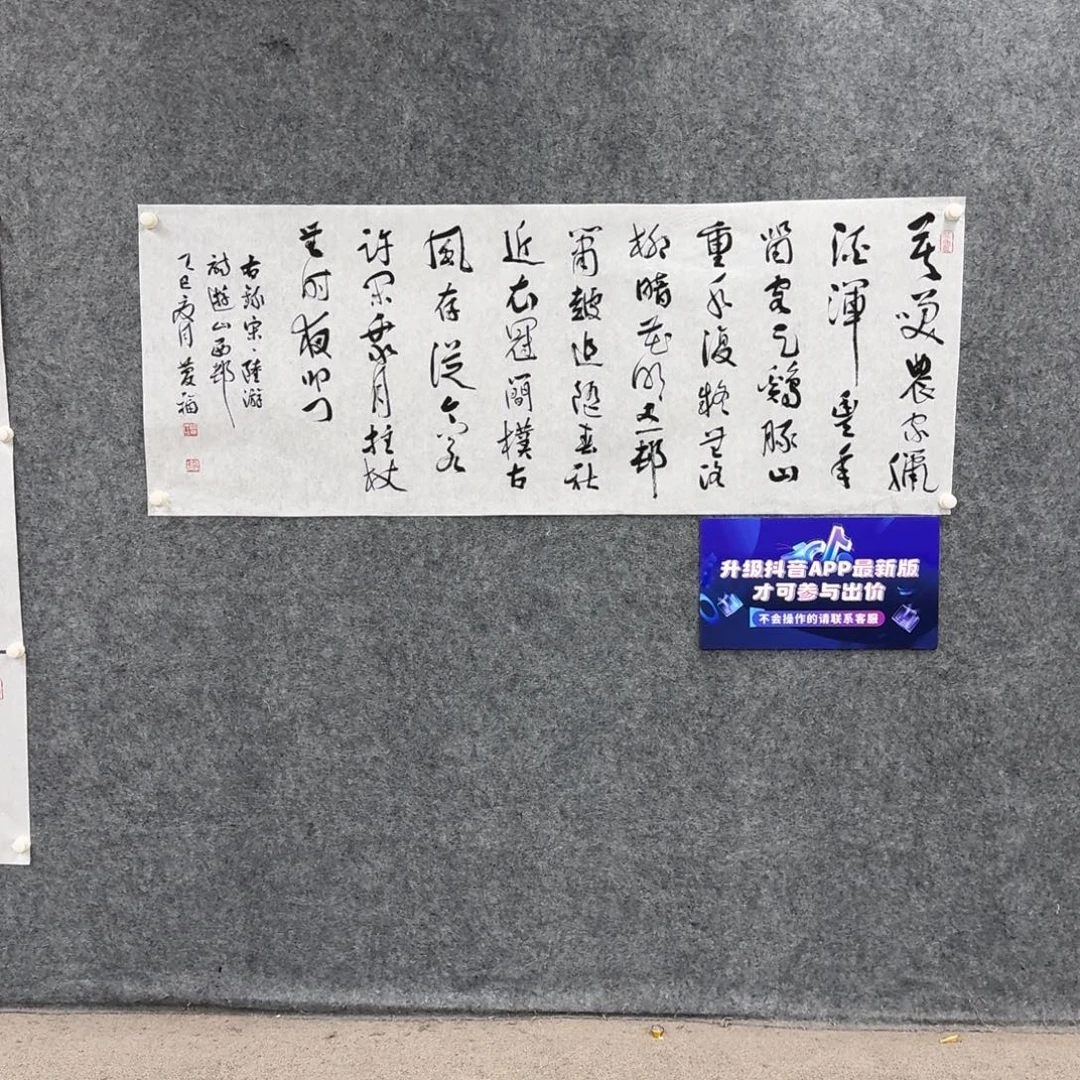 莫笑農家臘
酒渾豐年
留客足鷄豚山
重水復疑無路
柳暗花明又一邨
簫鼓追隨春社
近衣冠簡樸古
風存從今若
許閑乘月拄杖
無時夜叩門
右錄宋·陸游
詩遊山西邨
乙巳夏月 福
升级抖音APP最新版
才可参与出价
不会操作的请联系客服